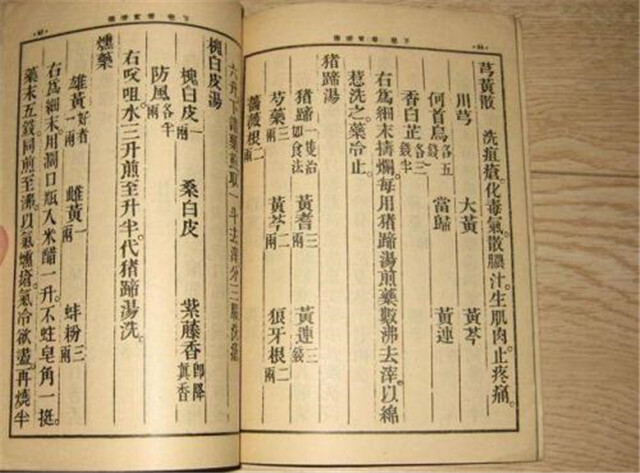 芎黃散　洗疽瘡。化毒氣。散膿汁。生肌肉。止疼痛。
川芎　大黃　黃芩
何首烏各五錢　當歸　黃連
香白芷各三錢半
右爲細末擣爛。每用猪蹄湯煎藥數沸。去滓。以綿
惹洗之。藥冷止。
猪蹄湯
猪蹄一隻治如食法　黃耆三兩　黃連三錢
芍藥三兩　黃芩二兩　狼牙根二兩
薔薇根二兩
六升下諸藥煎取一斗去滓分三服洗瘡
槐白皮湯
槐白皮一兩　桑白皮　紫藤香卽降眞香
防風各半兩
右㕮咀水三升煎至升半。代猪蹄湯洗。
燻藥
雄黃好者一兩　雌黃一兩　蚌粉三兩
右爲細末。用濶口瓶入米醋一升。不蛀皂角一挺。
藥末五錢。同煎至沸。以氣燻瘡。氣冷欲盡。再燒半